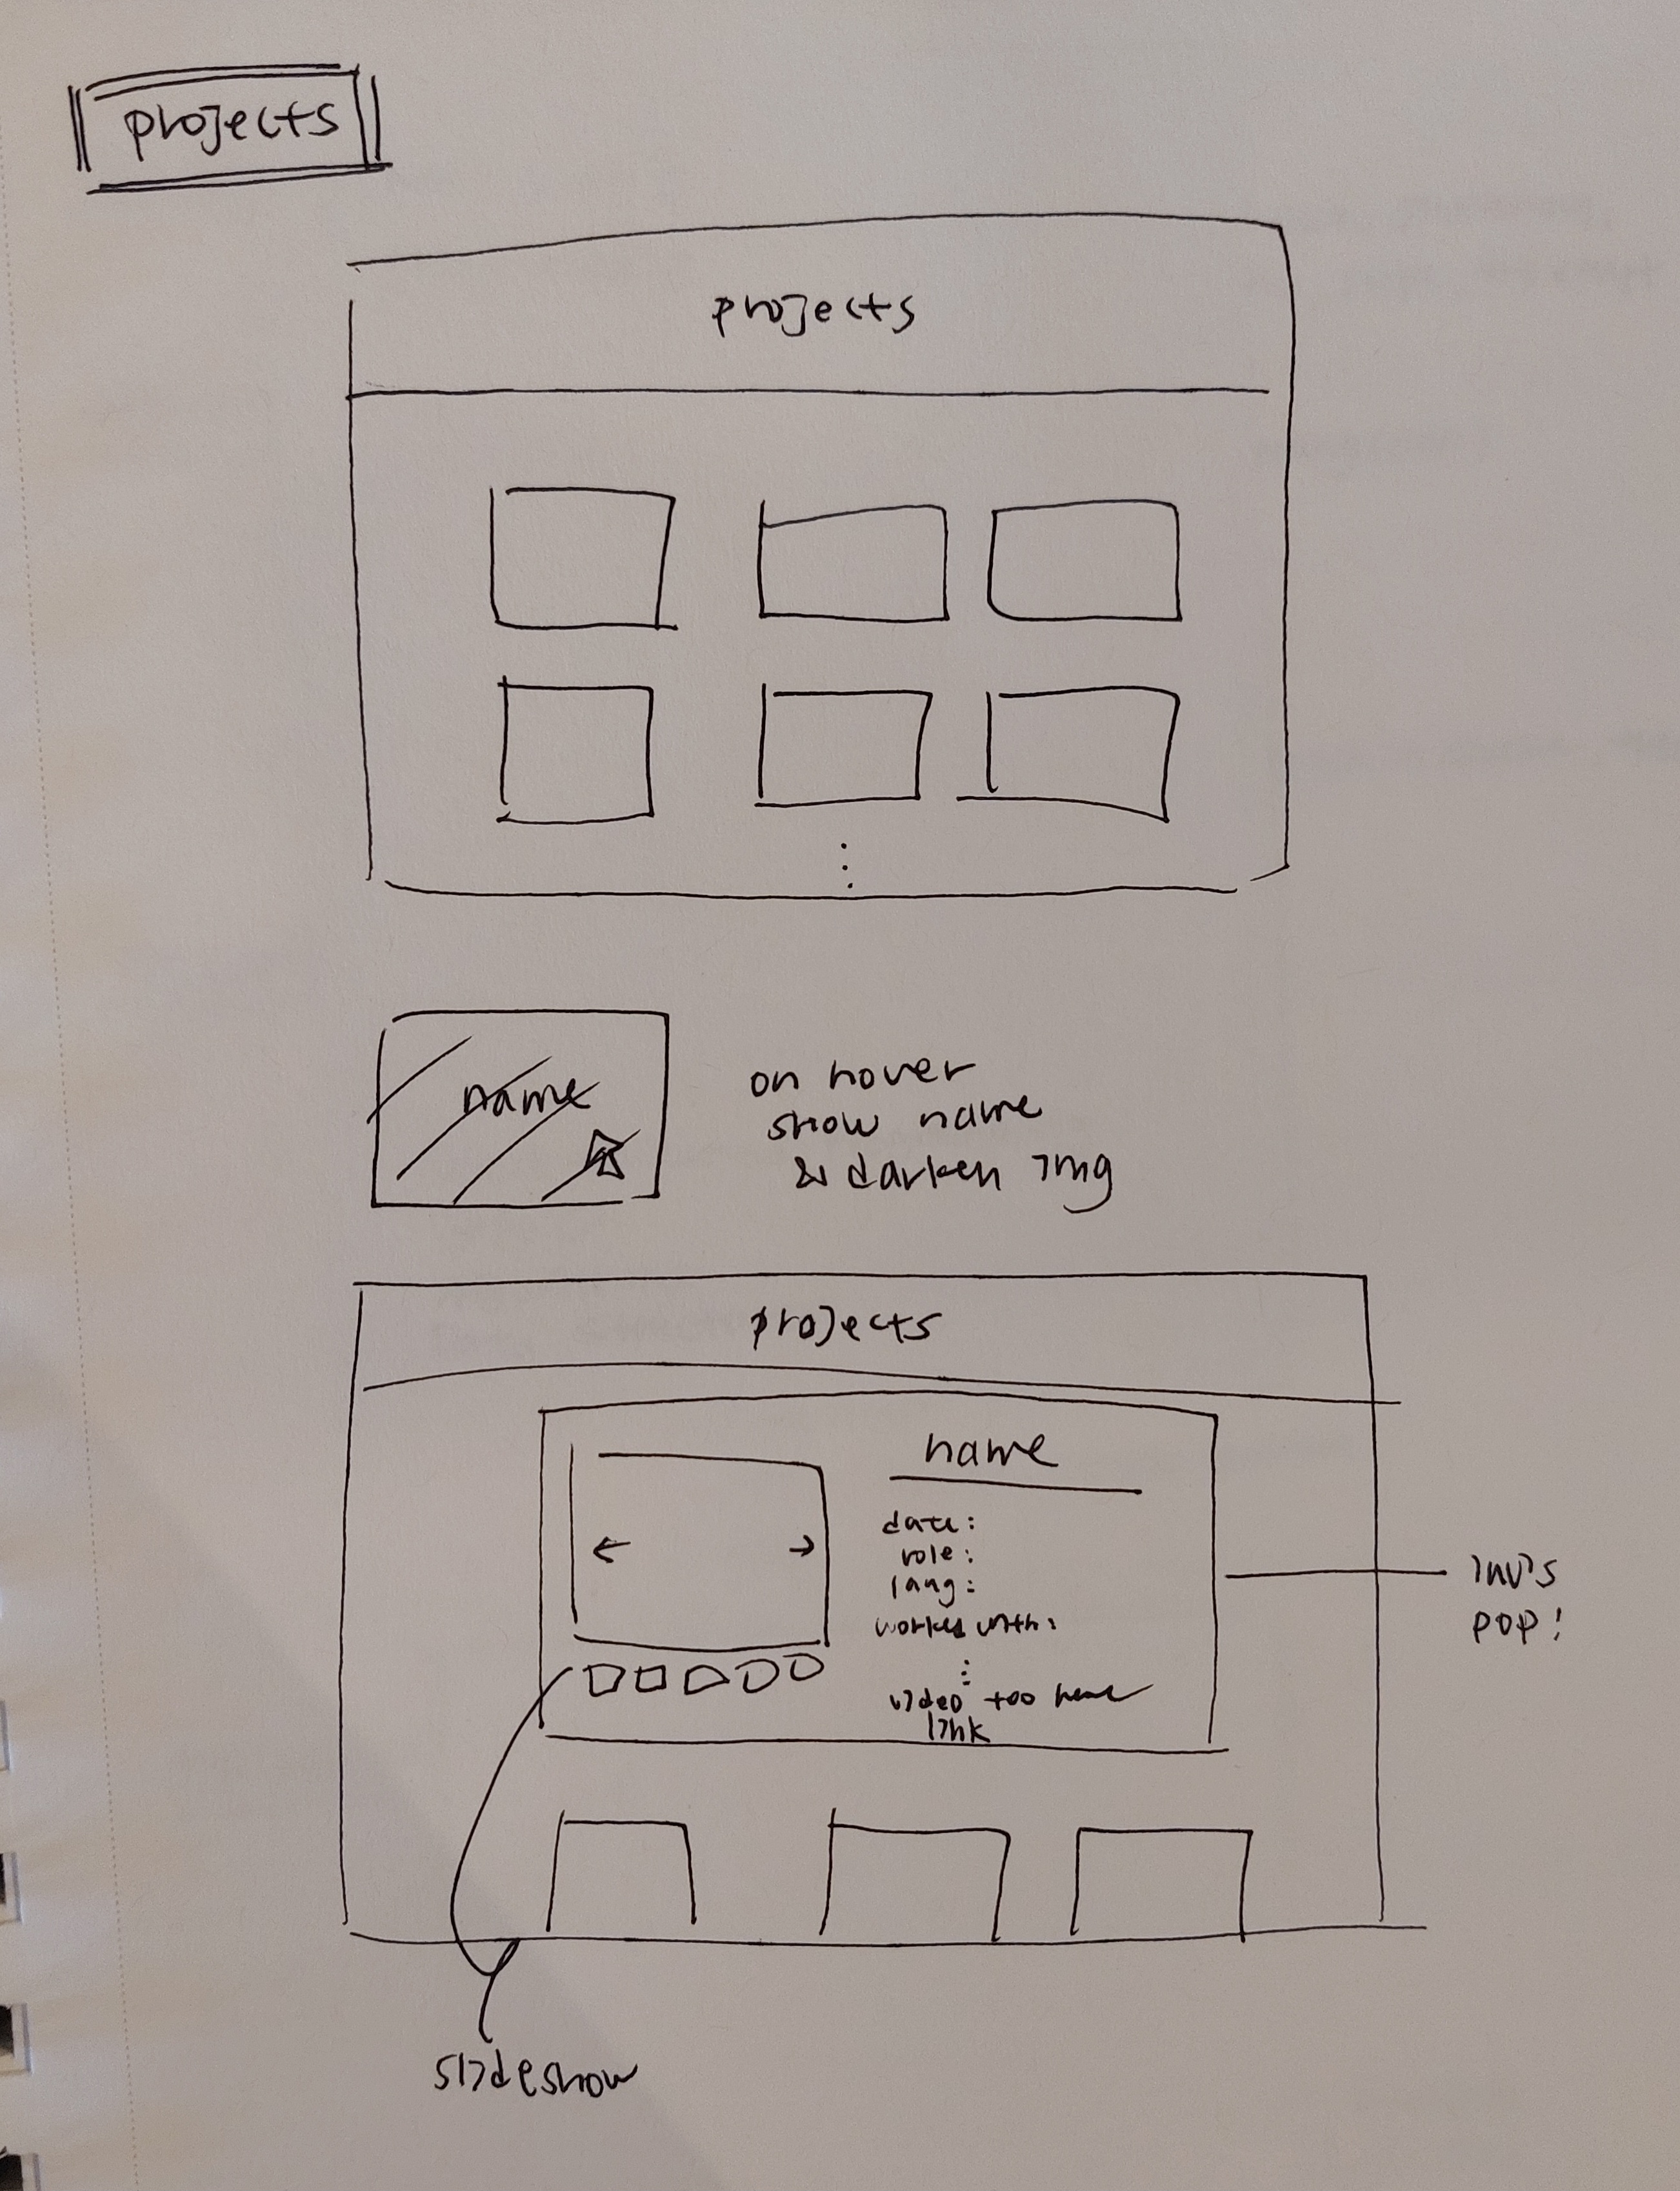 projects
projects
name
on hover
show name
& darken img
projects
name
date:
role:
lang:
worked with:
video too
link
invis
pop!
slideshow